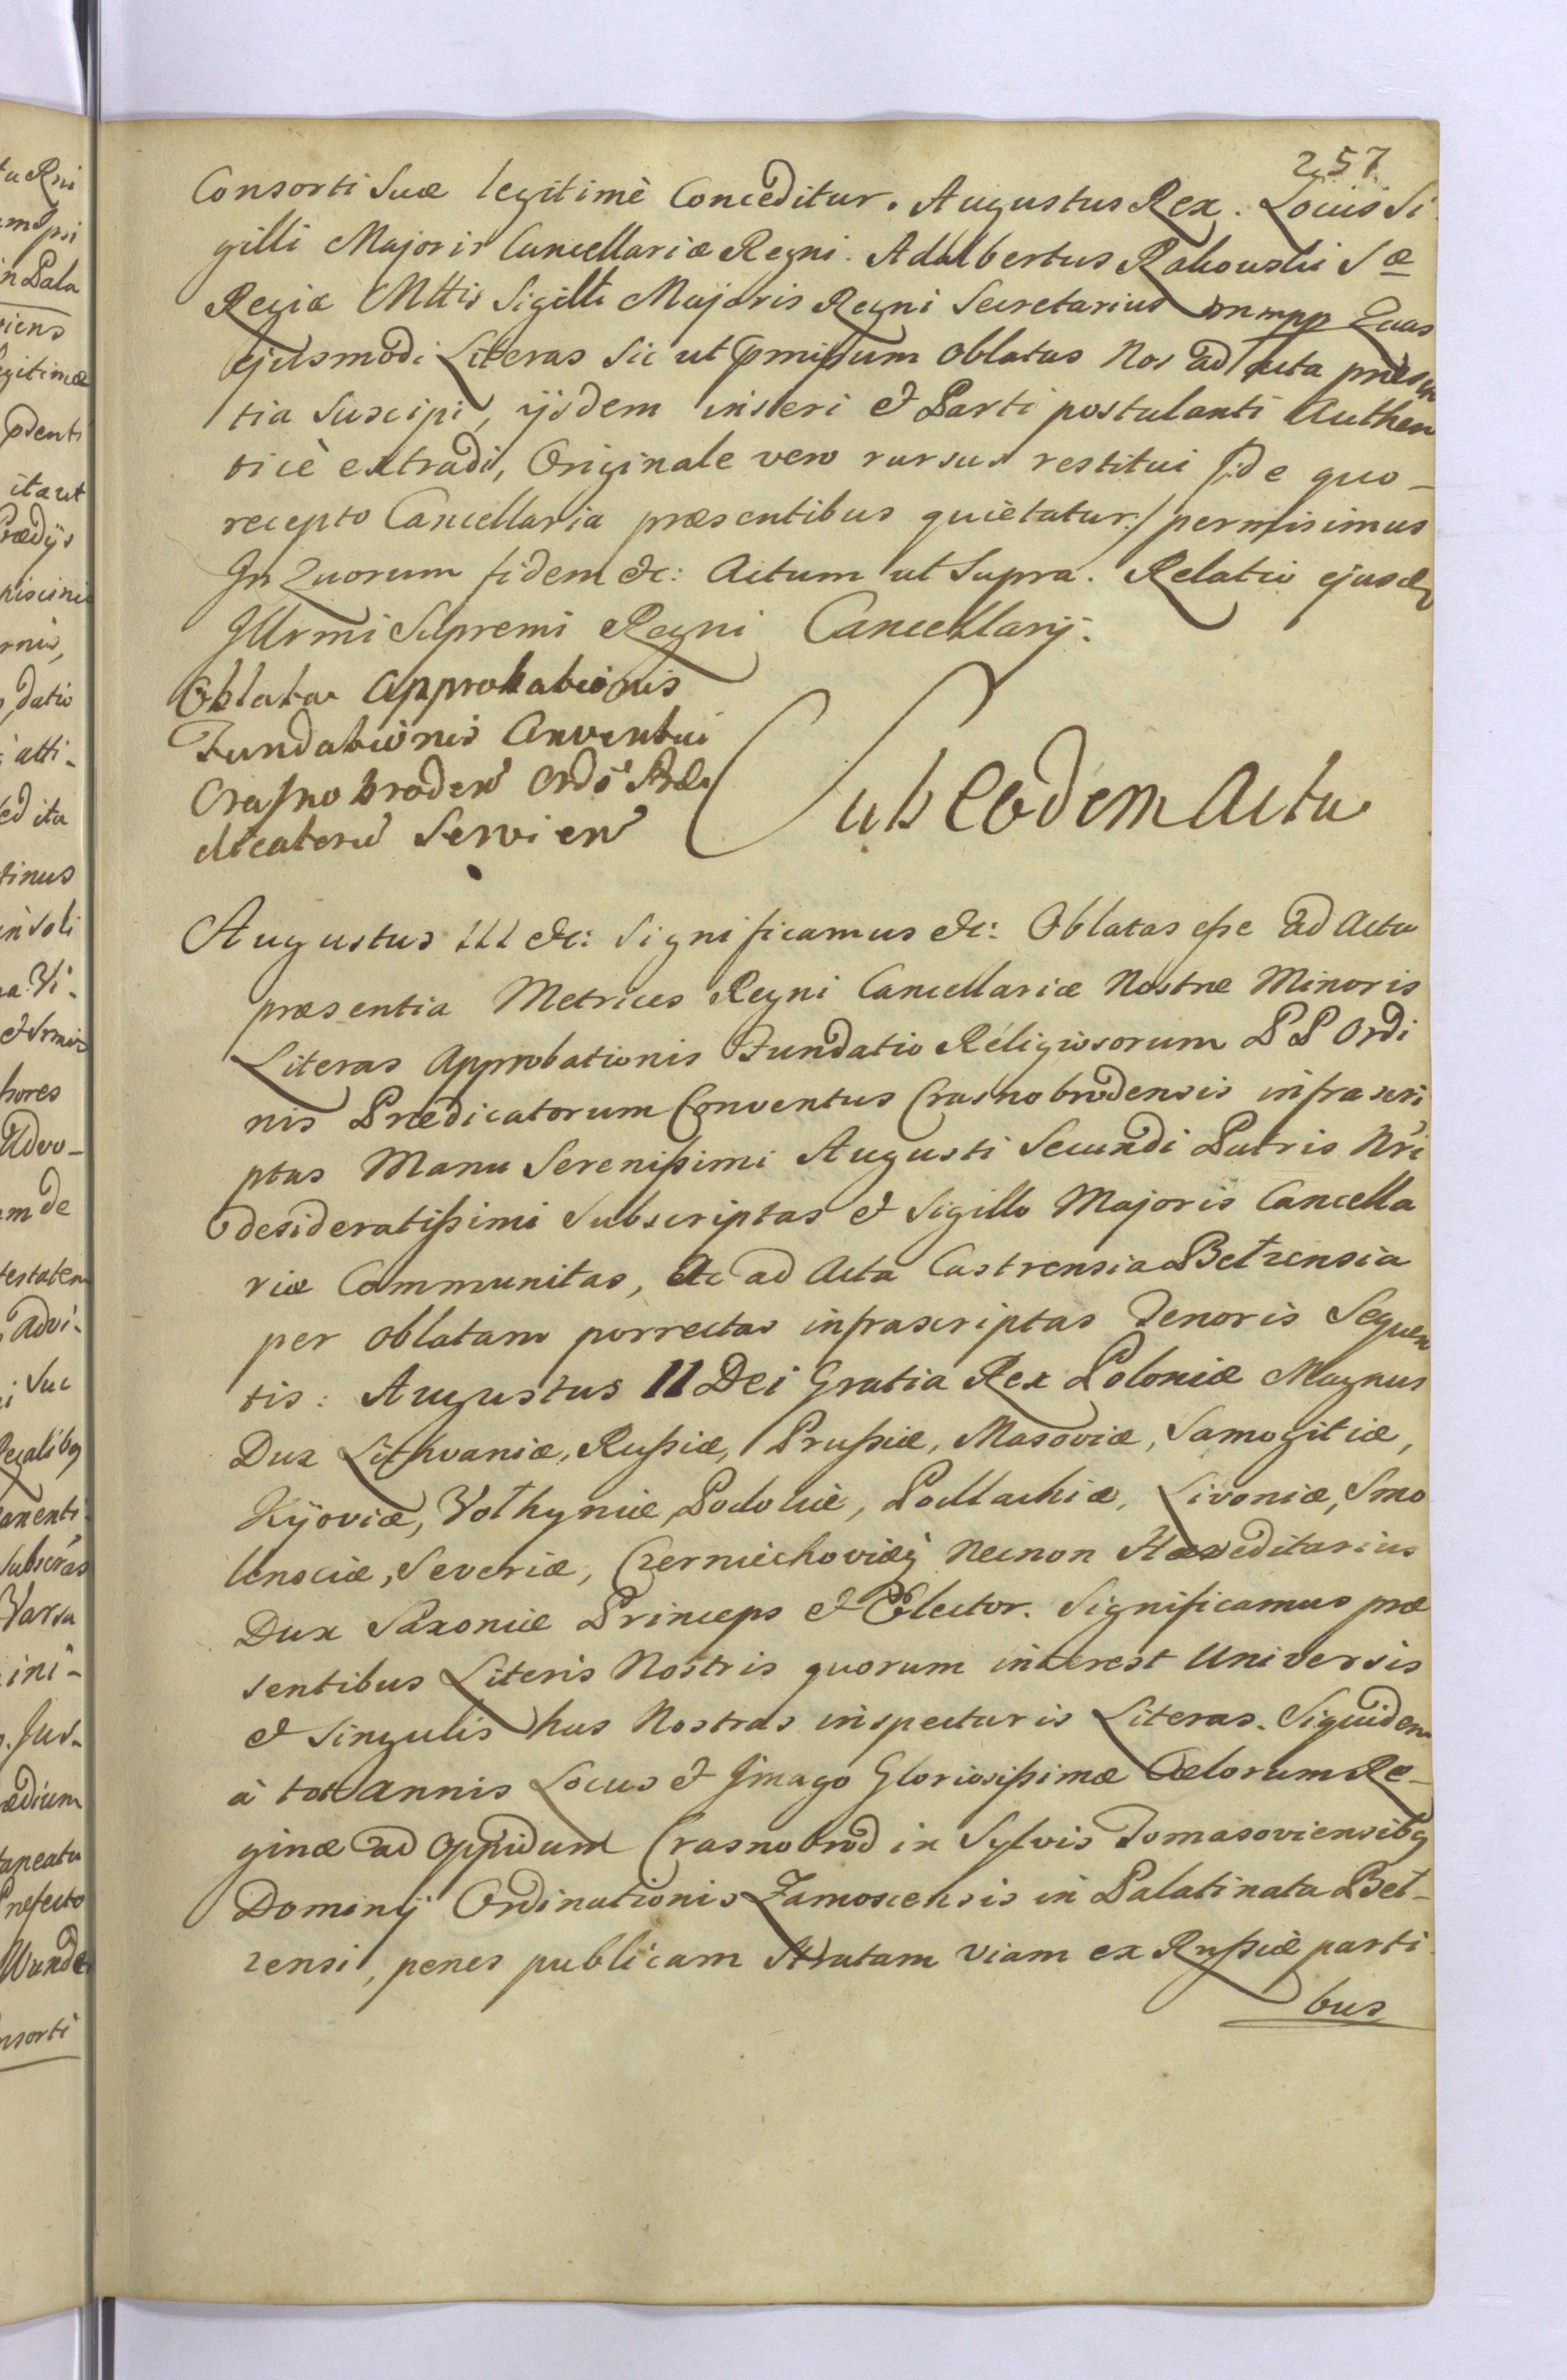 257
Consorti Suæ legitimè Conceditur. Augustus Rex. Locus Si
gilli Majoris Cancellariæ Regni. Adalbertus Rakowski Sæ
Regiæ Mttis Sigilli Majoris Regni Secretarius mpp Quas
ejusmodi Literas sic ut pmissum oblatas Nos ad Acta præsen
tia Suscipi, ijsdem inseri & Parti postulanti Authen
ticè extradi, Originale vero rursus restitui /:de quo_
recepto Cancellaria præsentibus quietatur:/ permisimus
In Quorum fidem &c: Actum ut Supra. Relatio ejusdem
Illrmi Supremi Regni Cancellarij.
Oblata Approbationis
Fundationis Conventui
Crasnobroden Ordis Præ
dicatorū Servien
Sub Eodem Actu
Augustus III &c: Significamus &c: Oblatas esse ad Acta
præsentia Metrices Regni Cancellariæ Nostræ Minoris
Literas Approbationis Fundatio Religiosorum PP Ordi
nis Prædicatorum Conventus Crasnobrodensis infrascri
ptas Manu Serenissimi Augusti Secundi Patris Nri
desideratissimi Subscriptas & Sigillo Majoris Cancella
riæ Communitas, Ac ad Acta Castrensia Bełzensia
per Oblatam porrectas infrascriptas Tenoris Sequen
tis: Augustus II Dei Gratia Rex Poloniæ Magnus
Dux Lithvaniæ, Russiæ, Prussiæ, Masoviæ, Samogitiæ,
Kijoviæ, Vołhyniæ, Podoliæ, Podlachiæ, Livoniæ, Smo
lensciæ, Severiæ, Czerniechoviæq Necnon Hæreditarius
Dux Saxoniæ Princeps & Elector. Significamus præ
sentibus Literis Nostris quorum interest Universis
& Singulis has Nostras inspecturis Literas. Siquidem
à tot annis Locus & Imago Gloriosissimæ Cælorum Re_
ginæ ad Oppidum Crasnobrod in Sylvis Tomasoviensibq
Dominij Ordinationis Zamoscensis in Palatinatu Beł_
zensi, penes publicam Stratam viam ex Russiæ parti
bus